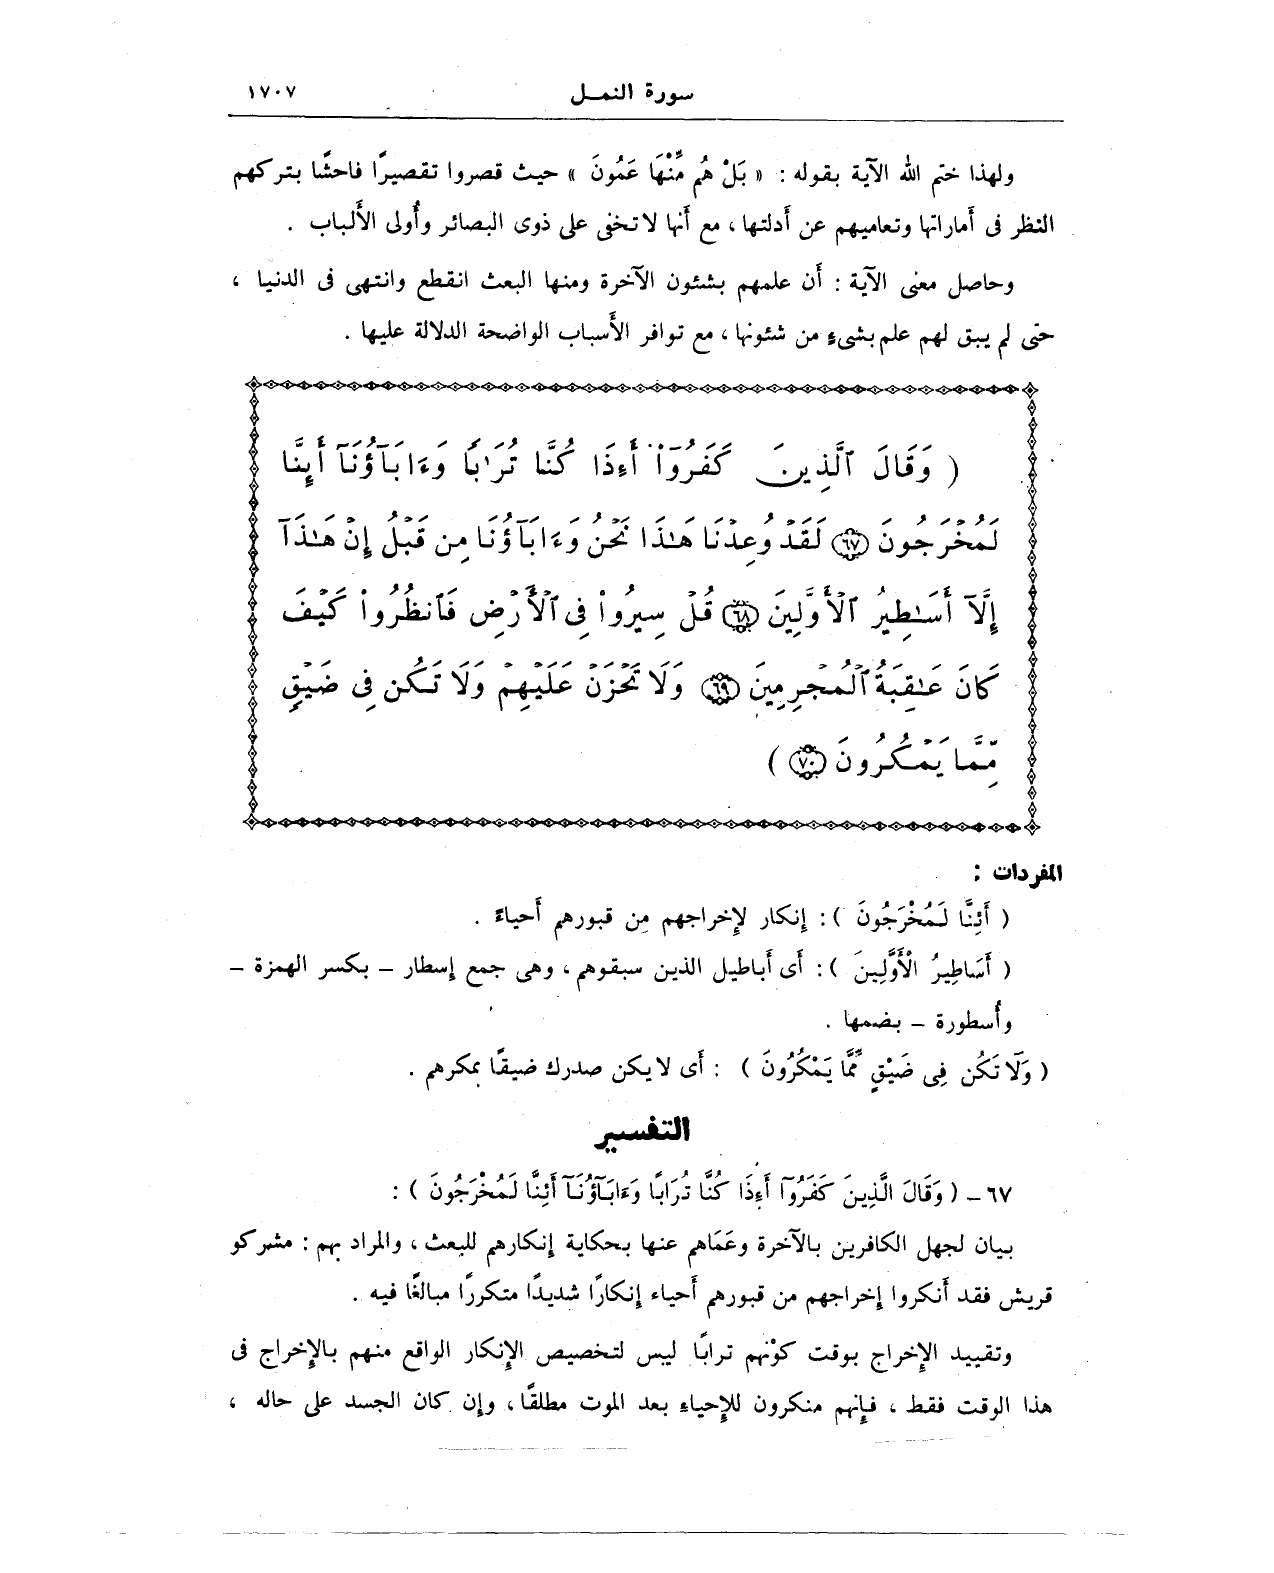 سورة النمـل ١٧٠٧
ولهذا ختم الله الآية بقوله : « بَلْ هُم مِّنْهَا عَمُونَ » حيث قصروا تقصيرًا فاحشًا بتركهم
النظر فى أماراتها وتعاميهم عن أدلتها ، مع أنها لا تخفى على ذوى البصائر وأُولى الألباب .
وحاصل معنى الآية : أن علمهم بشئون الآخرة ومنها البعث انقطع وانتهى فى الدنيا ،
حتى لم يبق لهم علم بشىءٍ من شئونها ، مع توافر الأسباب الواضحة الدلالة عليها .
( وَقَالَ ٱلَّذِينَ كَفَرُوٓا۟ أَءِذَا كُنَّا تُرَٰبًا وَءَابَآؤُنَآ أَئِنَّا
لَمُخْرَجُونَ ٦٧ لَقَدْ وُعِدْنَا هَٰذَا نَحْنُ وَءَابَآؤُنَا مِن قَبْلُ إِنْ هَٰذَآ
إِلَّآ أَسَٰطِيرُ ٱلْأَوَّلِينَ ٦٨ قُلْ سِيرُوا۟ فِى ٱلْأَرْضِ فَٱنظُرُوا۟ كَيْفَ
كَانَ عَٰقِبَةُ ٱلْمُجْرِمِينَ ٦٩ وَلَا تَحْزَنْ عَلَيْهِمْ وَلَا تَكُن فِى ضَيْقٍ
مِّمَّا يَمْكُرُونَ ٧٠ )
المفردات :
( أَئِنَّا لَمُخْرَجُونَ ) : إنكار لإخراجهم مِن قبورهم أَحياءً .
( أَسَاطِيرُ الْأَوَّلِينَ ) : أى أباطيل الذين سبقوهم ، وهى جمع إسطار – بكسر الهمزة –
وأُسطورة – بضمها .
( وَلَا تَكُن فِى ضَيْقٍ مِّمَّا يَمْكُرُونَ ) : أى لا يكن صدرك ضيقًا بمكرهم .
التفسير
٦٧ – ( وَقَالَ الَّذِينَ كَفَرُوٓا أَءِذَا كُنَّا تُرَابًا وَءَابَآؤُنَآ أَئِنَّا لَمُخْرَجُونَ ) :
بيان لجهل الكافرين بالآخرة وعَمَاهم عنها بحكاية إنكارهم للبعث ، والمراد بهم : مشركو
قريش فقد أنكروا إخراجهم من قبورهم أحياء إنكارًا شديدًا متكررًا مبالغًا فيه .
وتقييد الإخراج بوقت كوْنهم ترابًا ليس لتخصيص الإنكار الواقع منهم بالإخراج فى
هذا الوقت فقط ، فإنهم منكرون للإحياءِ بعد الموت مطلقًا ، وإن كان الجسد على حاله ،